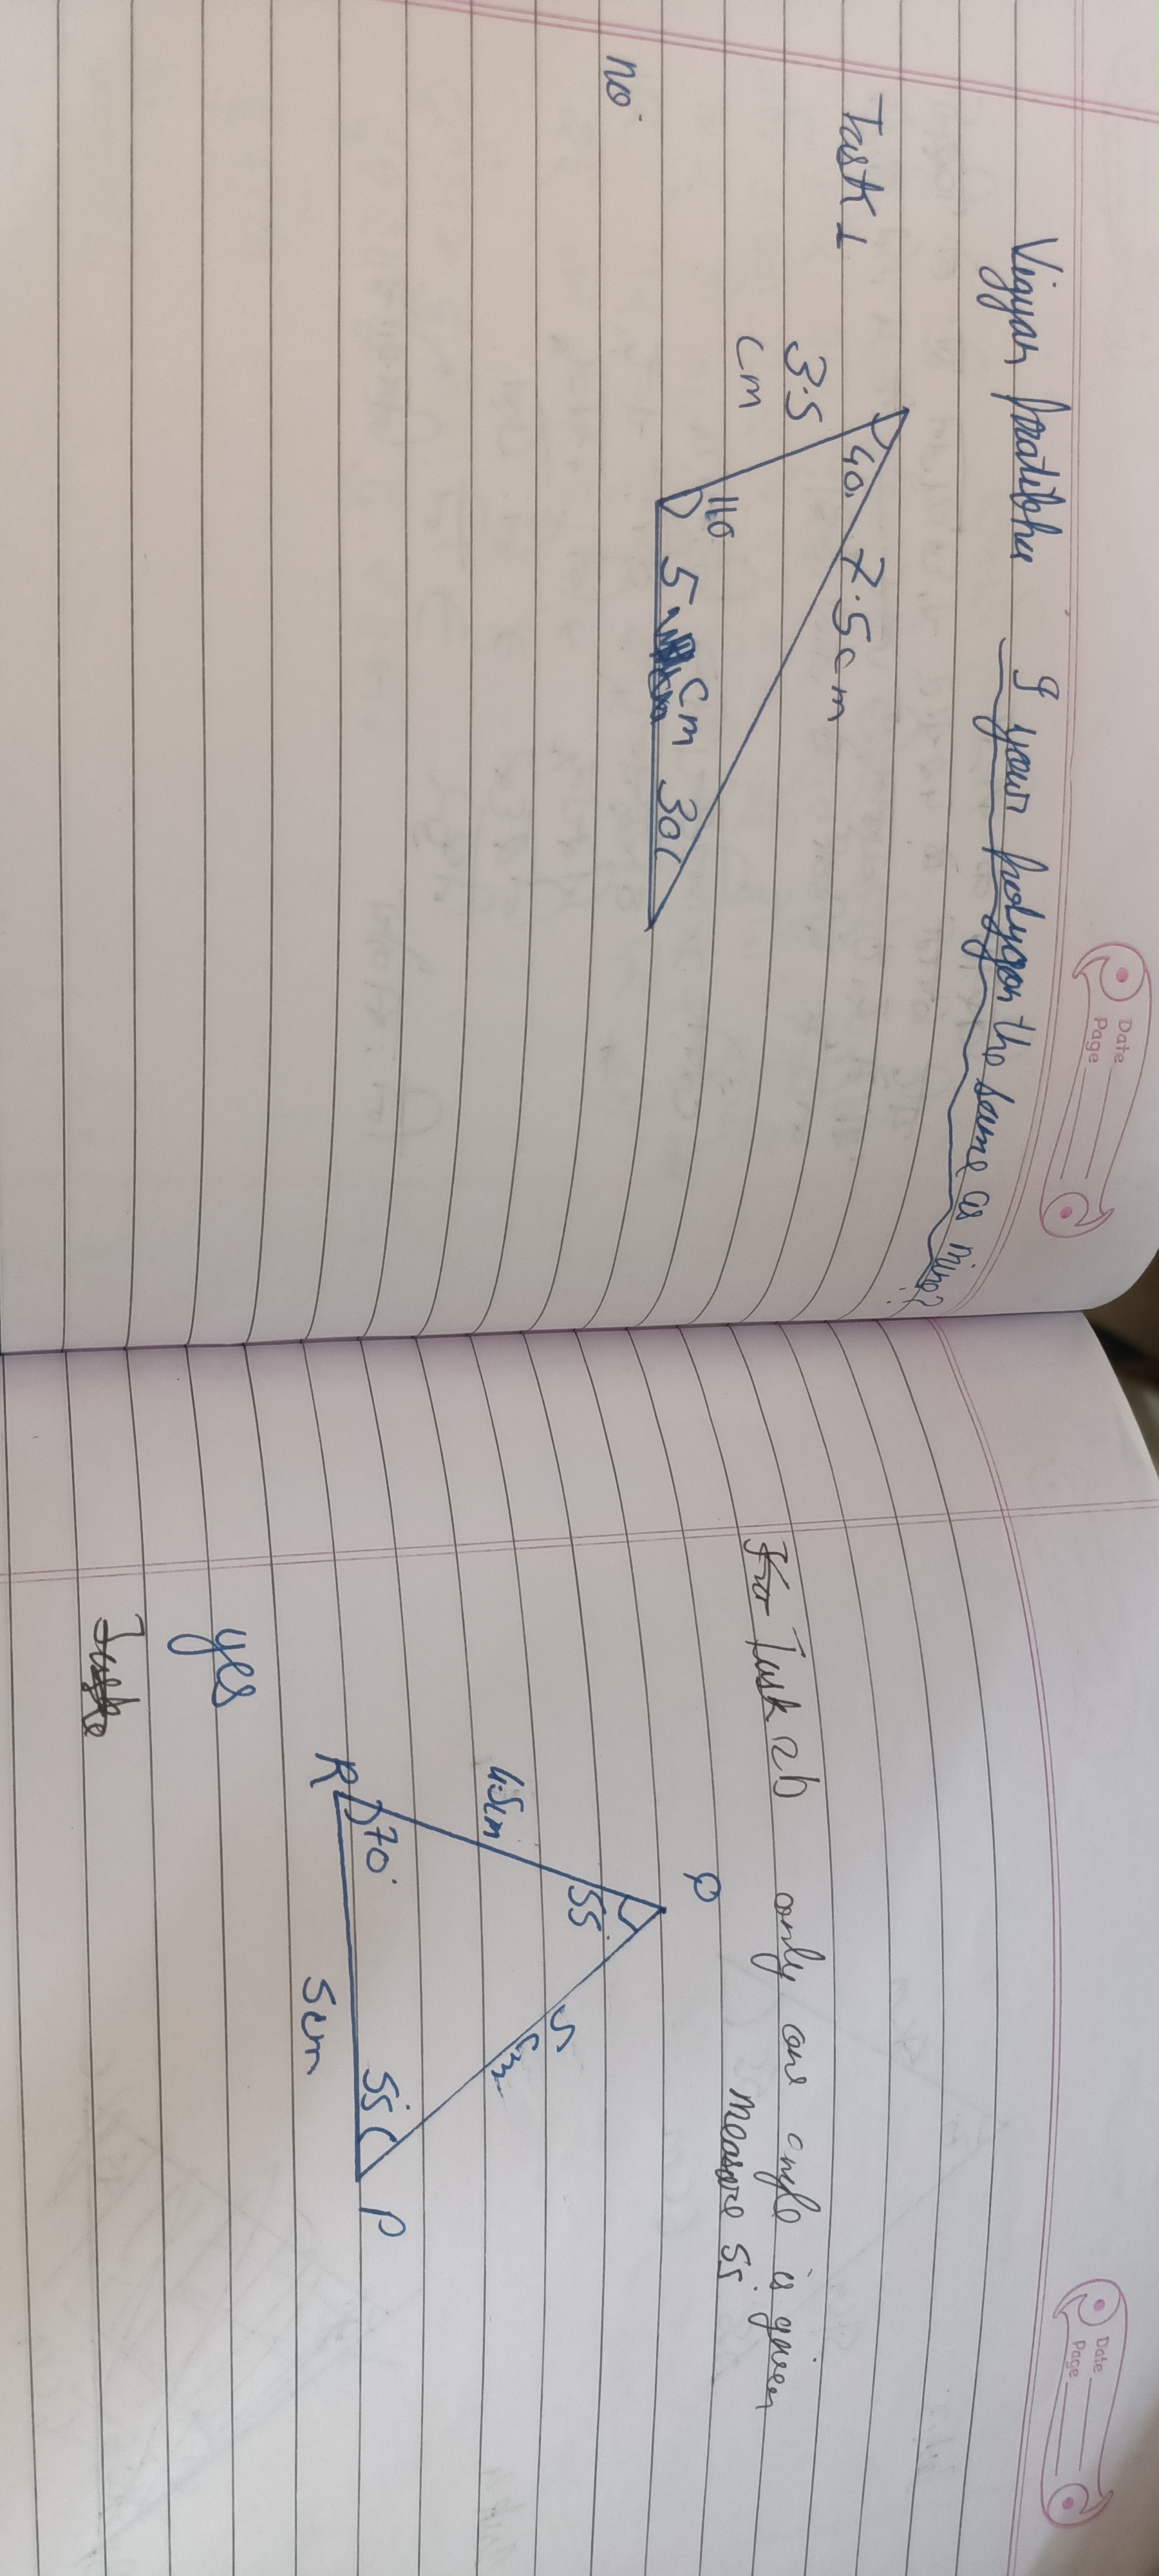 Date
Page
Vigyan pratibha I your polygon the same as mine?
Task 1
40
7.5cm
3.5
cm
110
5 cm 30
no
Date
Page
Task 2b only one angle is given
measure 55°
Q
55°
4.5cm
5
cm
R 70° 55° P
5cm
yes